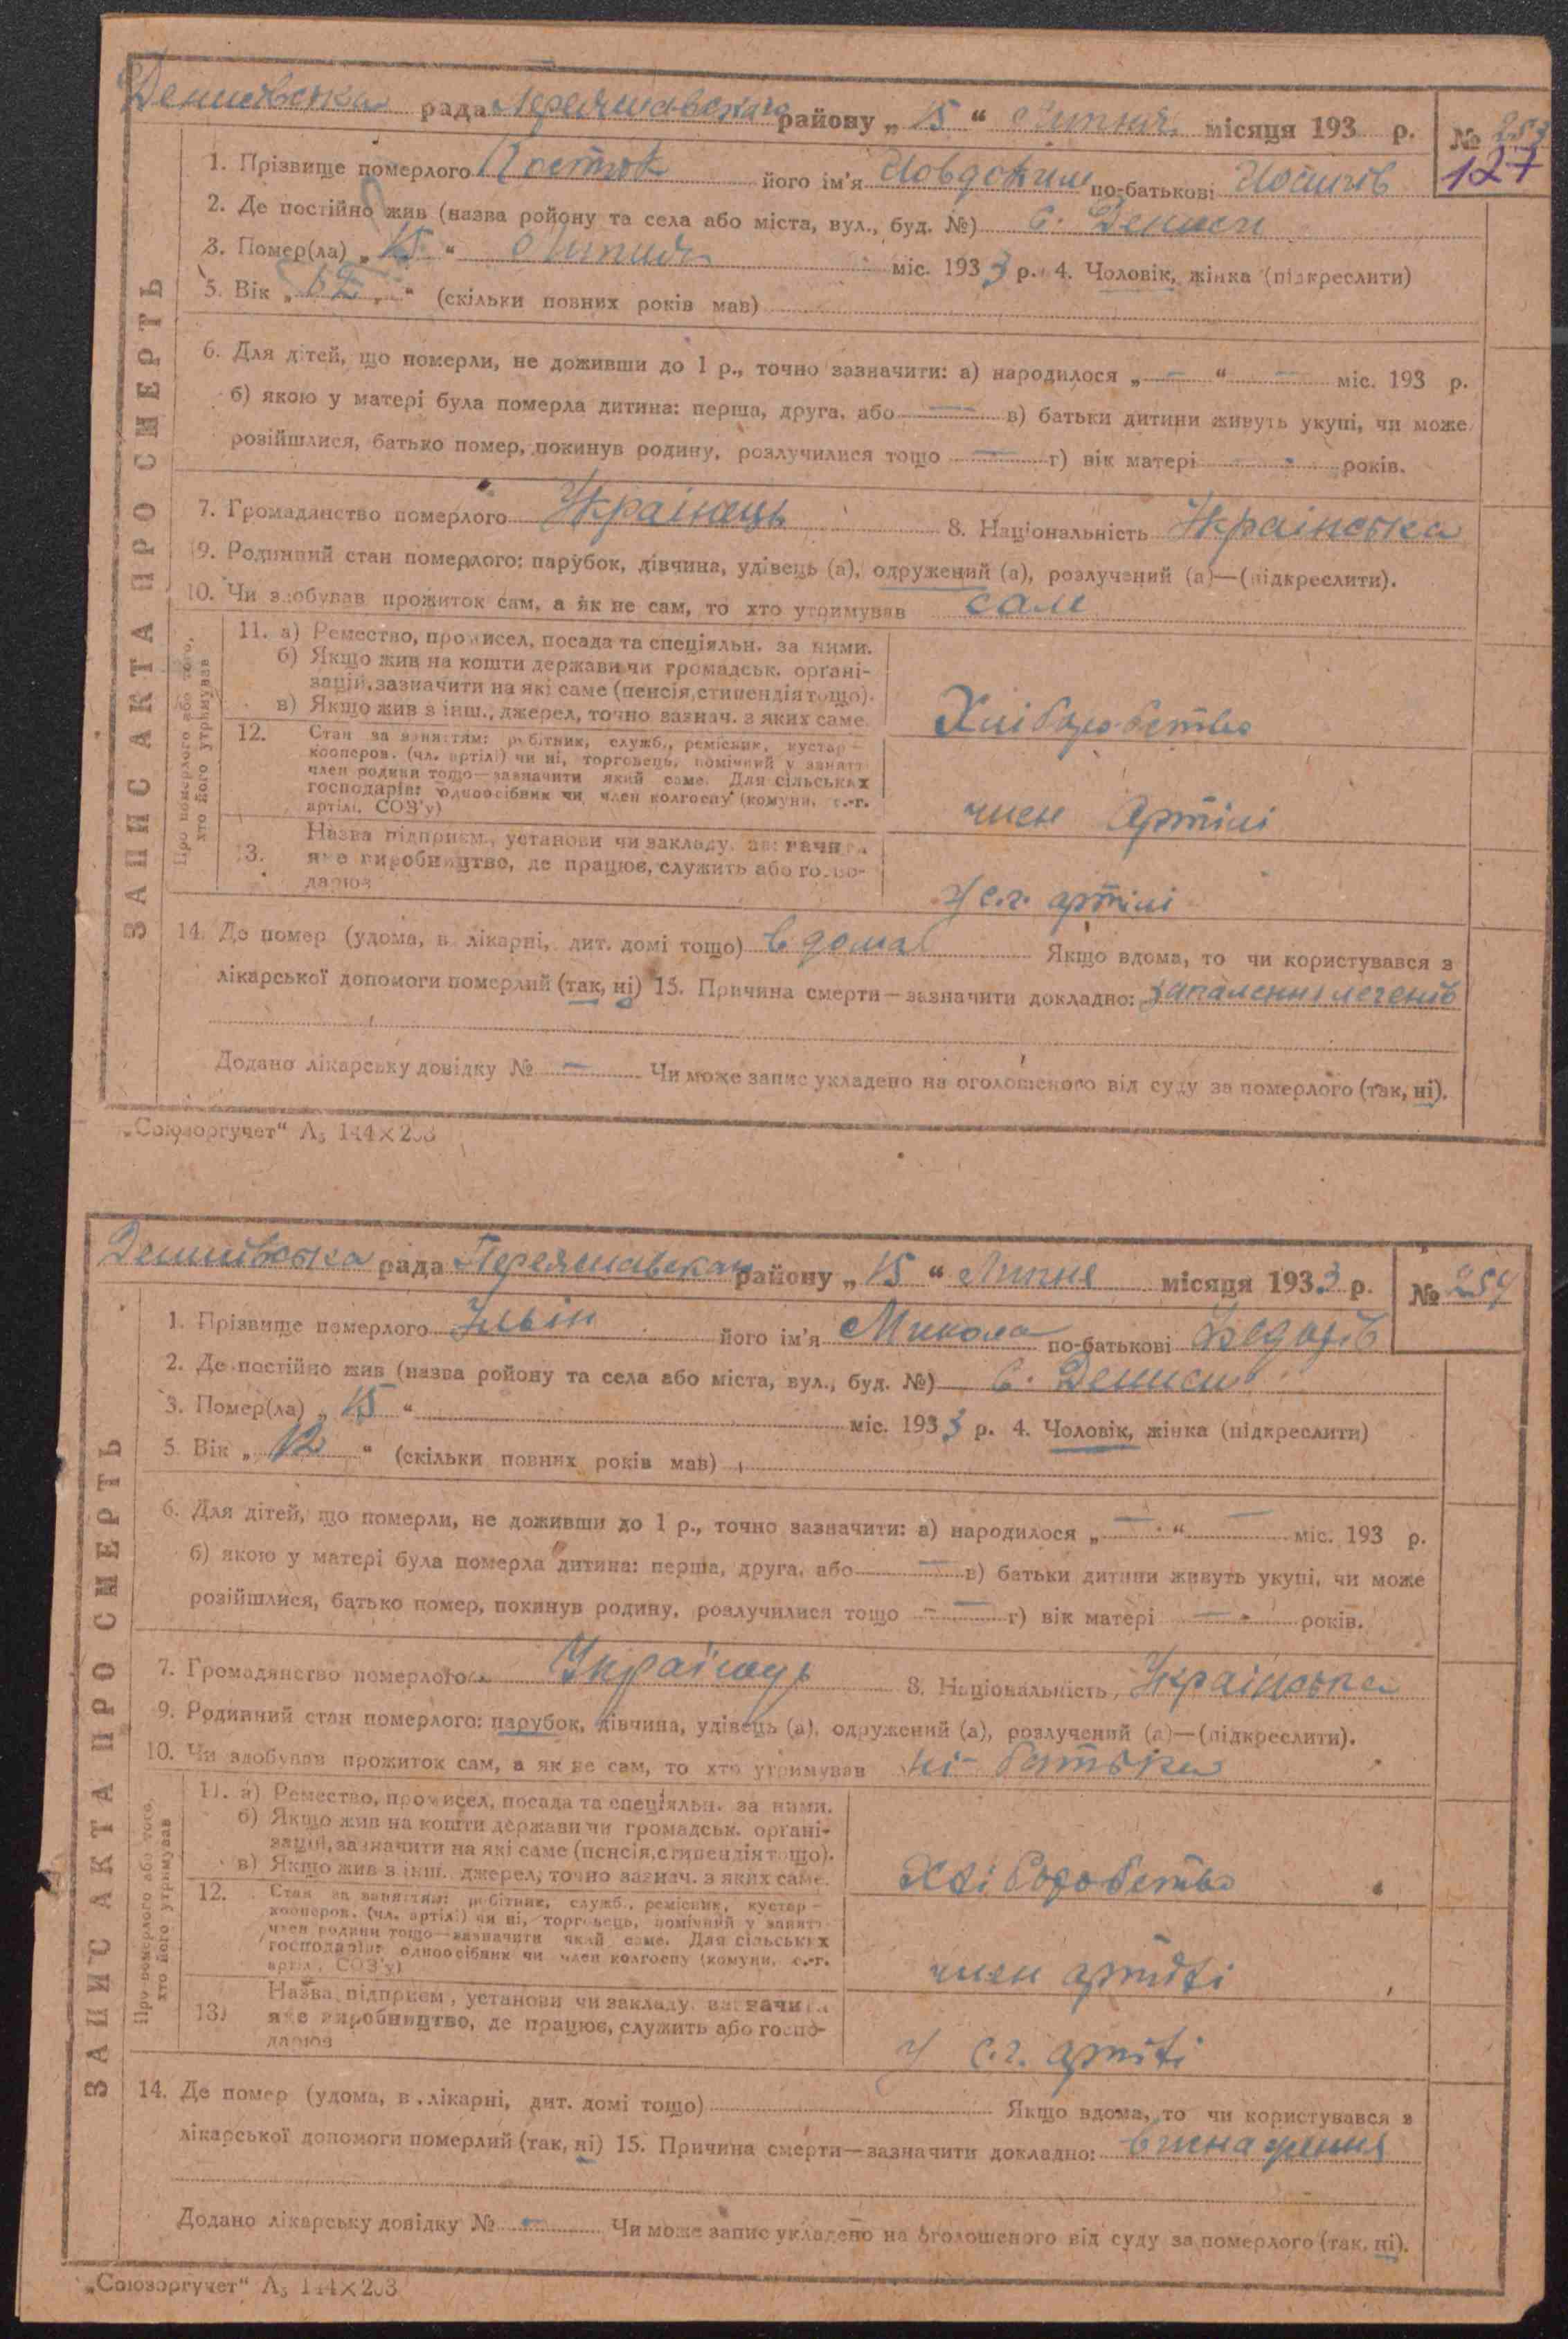 Денисівська рада Переяславського району „ 15 “ Липня місяця 193 р. № 253
127
1. Прізвище померлого Косток його ім'я Иовдоким по-батькові Йосипів
2. Де постійно жив (назва ройону та села або міста, вул., буд. №) с. Дениси
3. Помер(ла) „ 15 “ Липня міс. 1933 р. 4. Чоловік, жінка (підкреслити)
5. Вік „ “ (скільки повних років мав)
6. Для дітей, що померли, не доживши до 1 р., точно зазначити: а) народилося „ — “ — міс. 193 р.
б) якою у матері була померла дитина: перша, друга, або — в) батьки дитини живуть укупі, чи може
розійшлися, батько помер, покинув родину, розлучилися тощо — г) вік матері — років.
7. Громадянство померлого Украінець 8. Національність Украінська
9. Родинний стан померлого: парубок, дівчина, удівець (а), одружений (а), розлучений (а)—(підкреслити).
10. Чи здобував прожиток сам, а як не сам, то хто утримував сам
ЗАПИС АКТА ПРО СМЕРТЬ
Про померлого або того,
хто його утримував
11. а) Ремество, промисел, посада та спеціяльн. за ними.
б) Якщо жив на кошти держави чи громадськ. органі-
зацій, зазначити на які саме (пенсія, стипендія тощо).
в) Якщо жив з інш., джерел, точно зазнач. з яких саме.
Хліборобство
12. Стан за заняттям: робітник, служб., ремісник, кустар —
кооперов. (чл. артілі) чи ні, торговець, помічний у занятт.
член родини тощо—зазначити який саме. Для сільських
господарів: одноосібник чи член колгоспу (комуни, с.-г.
артілі, СОЗ'у)
член Артілі
13. Назва підприєм., установи чи закладу, зазначити
яке виробництво, де працює, служить або госпо-
дарює
У с.г. артілі
14. Де помер (удома, в лікарні, дит. домі тощо) в дома Якщо вдома, то чи користувався з
лікарської допомоги померлий (так, ні) 15. Причина смерти—зазначити докладно: запалення легенів
Додано лікарську довідку № — Чи може запис укладено на оголошеного від суду за померлого (так, ні).
„Союзоргучет“ А₅ 144×203
Денисівська рада Переяславськаго району „ 15 “ Липня місяця 1933 р. № 254
1. Прізвище померлого Ільін його ім'я Микола по-батькові Федорів
2. Де постійно жив (назва ройону та села або міста, вул., буд. №) с. Дениси
3. Помер(ла) „ 15 “ міс. 1933 р. 4. Чоловік, жінка (підкреслити)
5. Вік „ 12 “ (скільки повних років мав)
6. Для дітей, що померли, не доживши до 1 р., точно зазначити: а) народилося „ — “ — міс. 193 р.
б) якою у матері була померла дитина: перша, друга, або — в) батьки дитини живуть укупі, чи може
розійшлися, батько помер, покинув родину, розлучилися тощо — г) вік матері — років.
7. Громадянство померлого Україець 8. Національність Українська
9. Родинний стан померлого: парубок, дівчина, удівець (а), одружений (а), розлучений (а)—(підкреслити).
10. Чи здобував прожиток сам, а як не сам, то хто утримував ні - батько
ЗАПИС АКТА ПРО СМЕРТЬ
Про померлого або того,
хто його утримував
11. а) Ремество, промисел, посада та спеціяльн. за ними.
б) Якщо жив на кошти держави чи громадськ. органі-
зацій, зазначити на які саме (пенсія, стипендія тощо).
в) Якщо жив з інш. джерел, точно зазнач. з яких саме.
Хліборобство
12. Стан за заняттям: робітник, служб., ремісник, кустар —
кооперов. (чл. артілі) чи ні, торговець, помічний у занятт.
член родини тощо—зазначити який саме. Для сільських
господарів: одноосібник чи член колгоспу (комуни, с.-г.
артілі, СОЗ'у)
член артілі
13. Назва підприєм., установи чи закладу, зазначити
яке виробництво, де працює, служить або госпо-
дарює
У с.г. артілі
14. Де помер (удома, в лікарні, дит. домі тощо) Якщо вдома, то чи користувався з
лікарської допомоги померлий (так, ні) 15. Причина смерти—зазначити докладно: виснаження
Додано лікарську довідку № — Чи може запис укладено на оголошеного від суду за померлого (так, ні).
„Союзоргучет“ А₅ 144×203